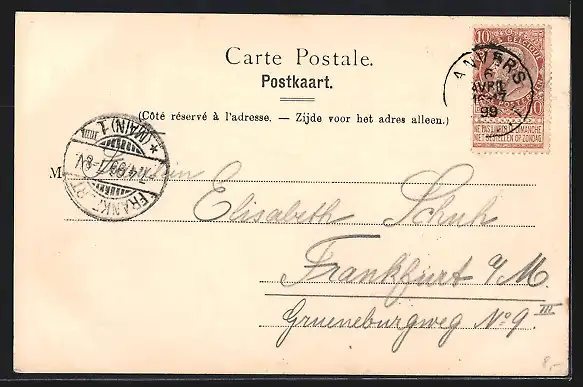 Carte Postale.
Postkaart.
(Côté réservé à l'adresse. — Zijde voor het adres alleen.)
10 BELGIQUE 10
NE PAS LIVRER LE DIMANCHE
NIET BESTELLEN OP ZONDAG
ANVERS
6
AVRIL
99
FRANKFURT * (MAIN) 1
7.4.99
8-9V.
M
Elisabeth Schuh
Frankfurt a/M.
Grueneburgweg No 9. III
8,-